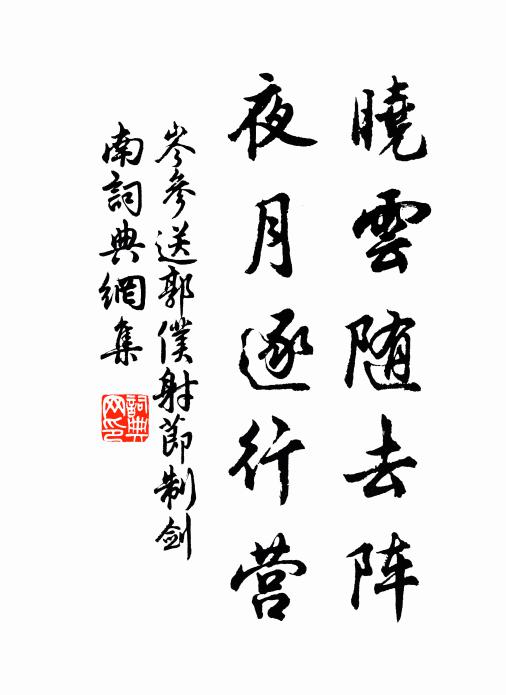 曉雲随去阵
夜月逐行营
岑參送郭僕射節制剑
南詞典網集
詞典网印